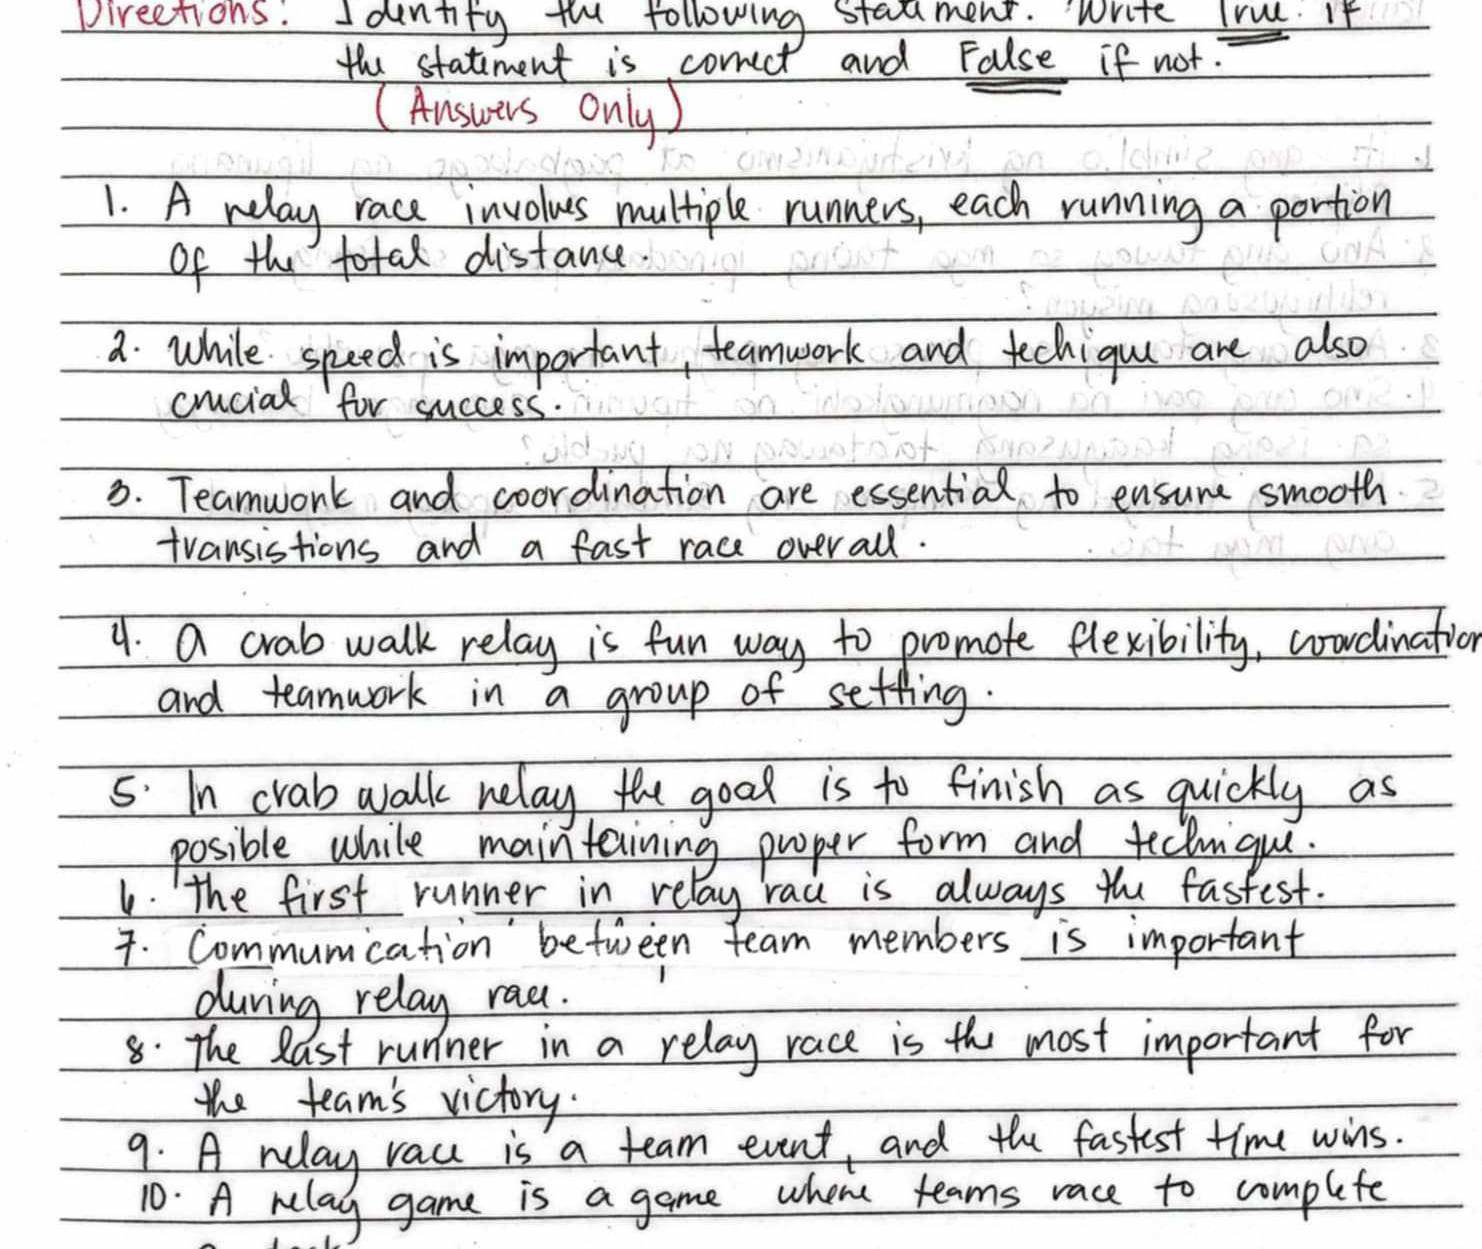 Directions: Identify the following statement. Write True if
the statement is correct and False if not.
(Answers Only)
1. A relay race involves multiple runners, each running a portion
of the total distance.
2. While speed is important, teamwork and techique are also
crucial for success.
3. Teamwork and coordination are essential to ensure smooth
transistions and a fast race overall.
4. A crab walk relay is fun way to promote flexibility, coordination
and teamwork in a group of setting.
5. In crab walk relay the goal is to finish as quickly as
posible while maintaining proper form and technique.
6. The first runner in relay race is always the fastest.
7. Communication between team members is important
during relay race.
8. The last runner in a relay race is the most important for
the team's victory.
9. A relay race is a team event, and the fastest time wins.
10. A relay game is a game where teams race to complete
a task